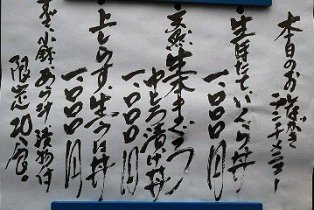 本日のお
ランチメニュー
・生ほたていくら丼
一〇〇〇円
・天然生本まぐろ
中とろ漬け丼
一〇〇〇円
・上しらす、生うに丼
一〇〇〇円
玉子、小鉢、あらみそ汁、お漬物付
限定20食